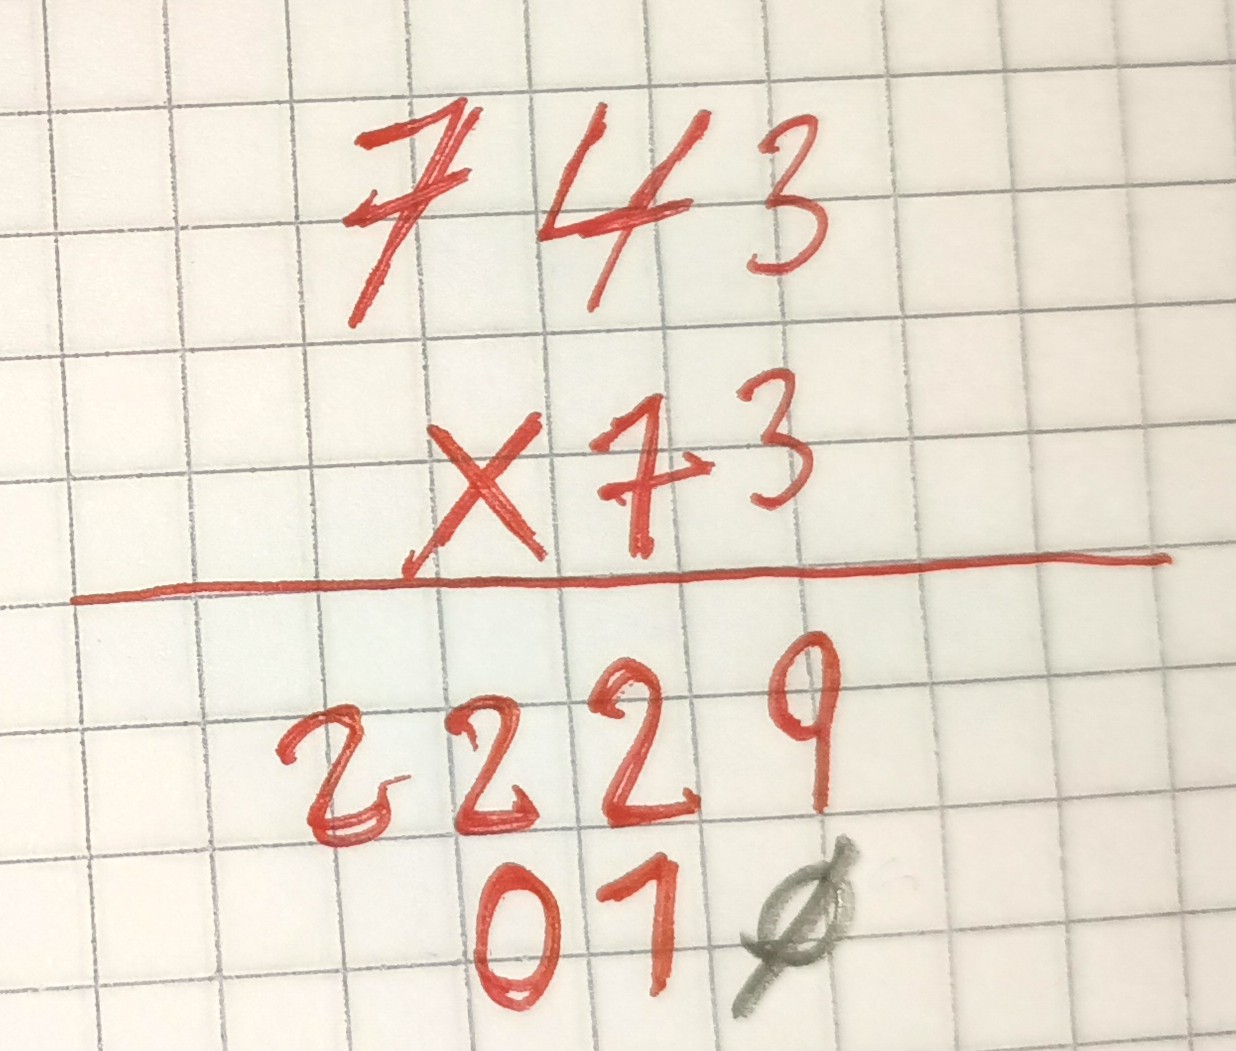 743
×73
2229
010